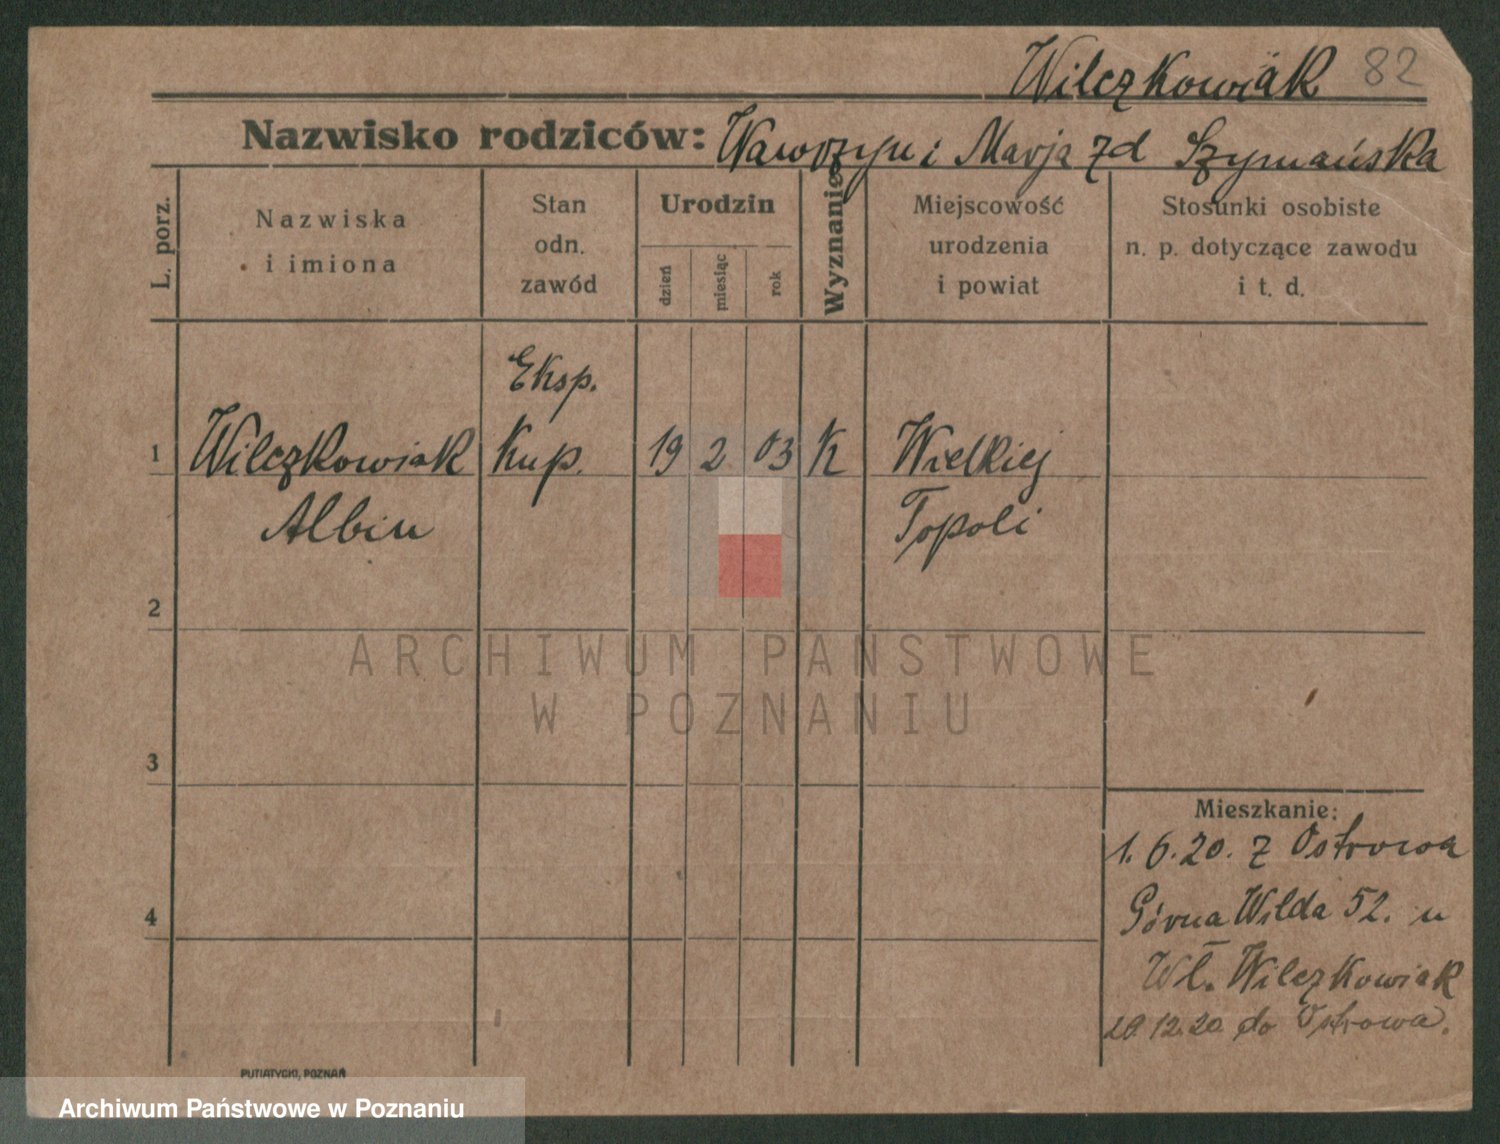 Wilczkowiak 82
Nazwisko rodziców: Wawrzyn i Marja zd Szymańska
L. porz.
Nazwiska
i imiona
Stan
odn.
zawód
Urodzin
dzień
miesiąc
rok
Wyznanie
Miejscowość
urodzenia
i powiat
Stosunki osobiste
n. p. dotyczące zawodu
i t. d.
Eksp.
1 Wilczkowiak Kup. 19 2 03 K Wielkiej
Albin Topoli
2
ARCHIWUM PAŃSTWOWE
W POZNANIU
3
Mieszkanie:
1.6.20. z Ostrowa
4 Górna Wilda 52. u
Wł. Wilczkowiak
20.12.20 do Ostrowa.
PUTIATYCKI, POZNAŃ
Archiwum Państwowe w Poznaniu